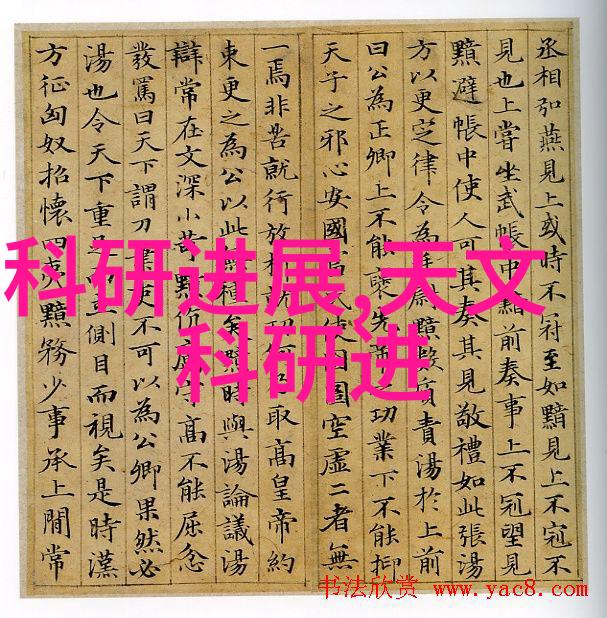 丞相弘燕見上或時不冠至如黯見上不冠不
見也上嘗坐武帳中黯前奏事上不冠望見
黯避帳中使人可其奏其見敬禮如此張湯
方以更定律令為廷尉黯數質責湯於上前
曰公為正卿上不能襃先功業下不能抑
天子之邪心安國富民使囹圄空虛二者無
一焉非苦就行放析就功取高皇帝約
束更之為公以此無種矣黯時與湯論議湯
辯常在文深小苛黯伉厲守高不能屈忿
發罵曰天下謂刀筆吏不可以為公卿果然必
湯也令天下重足而立側目而視矣是時漢
方征匈奴招懷四夷黯務少事承上間常
科研进展,天文
科研进
书法欣赏 www.yac8.com